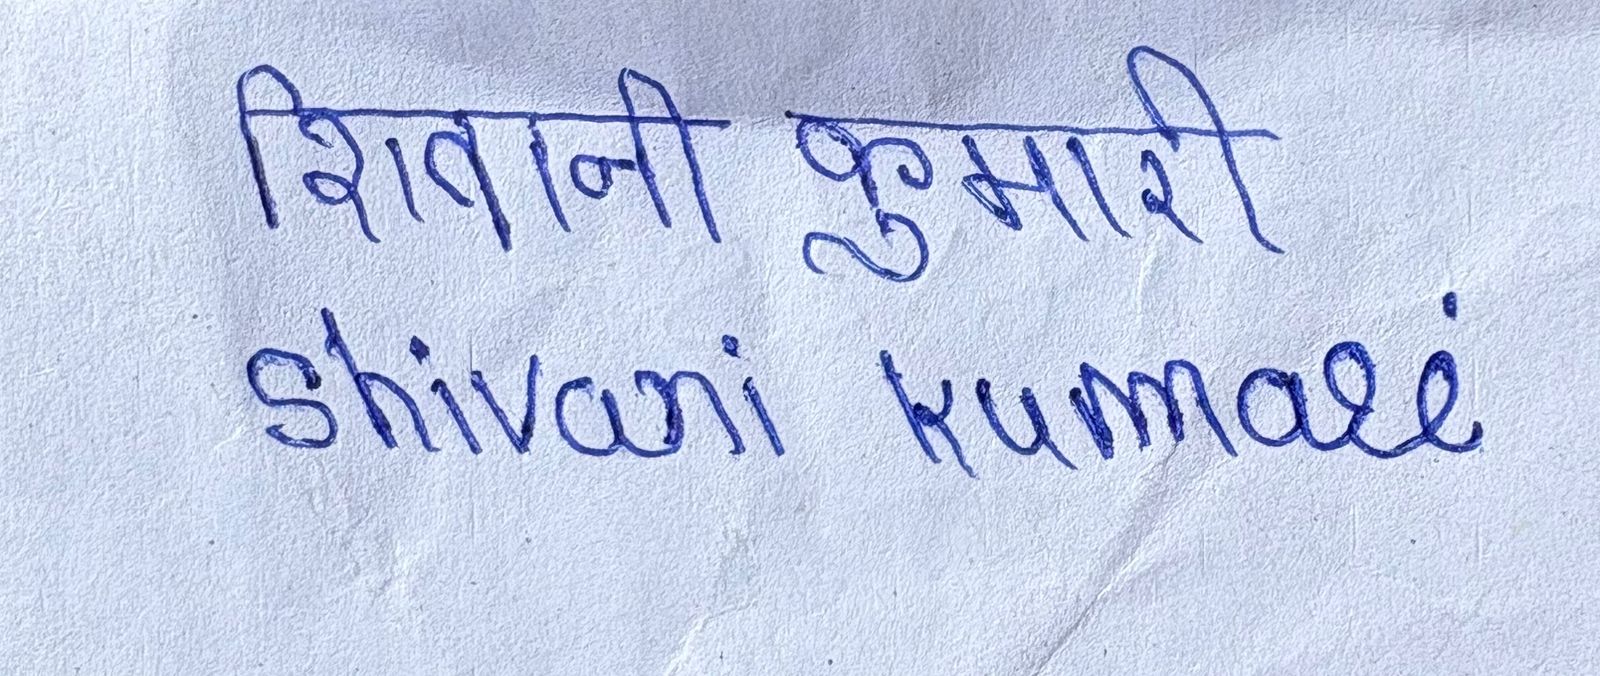 शिवानी कुमारी
Shivani kumari